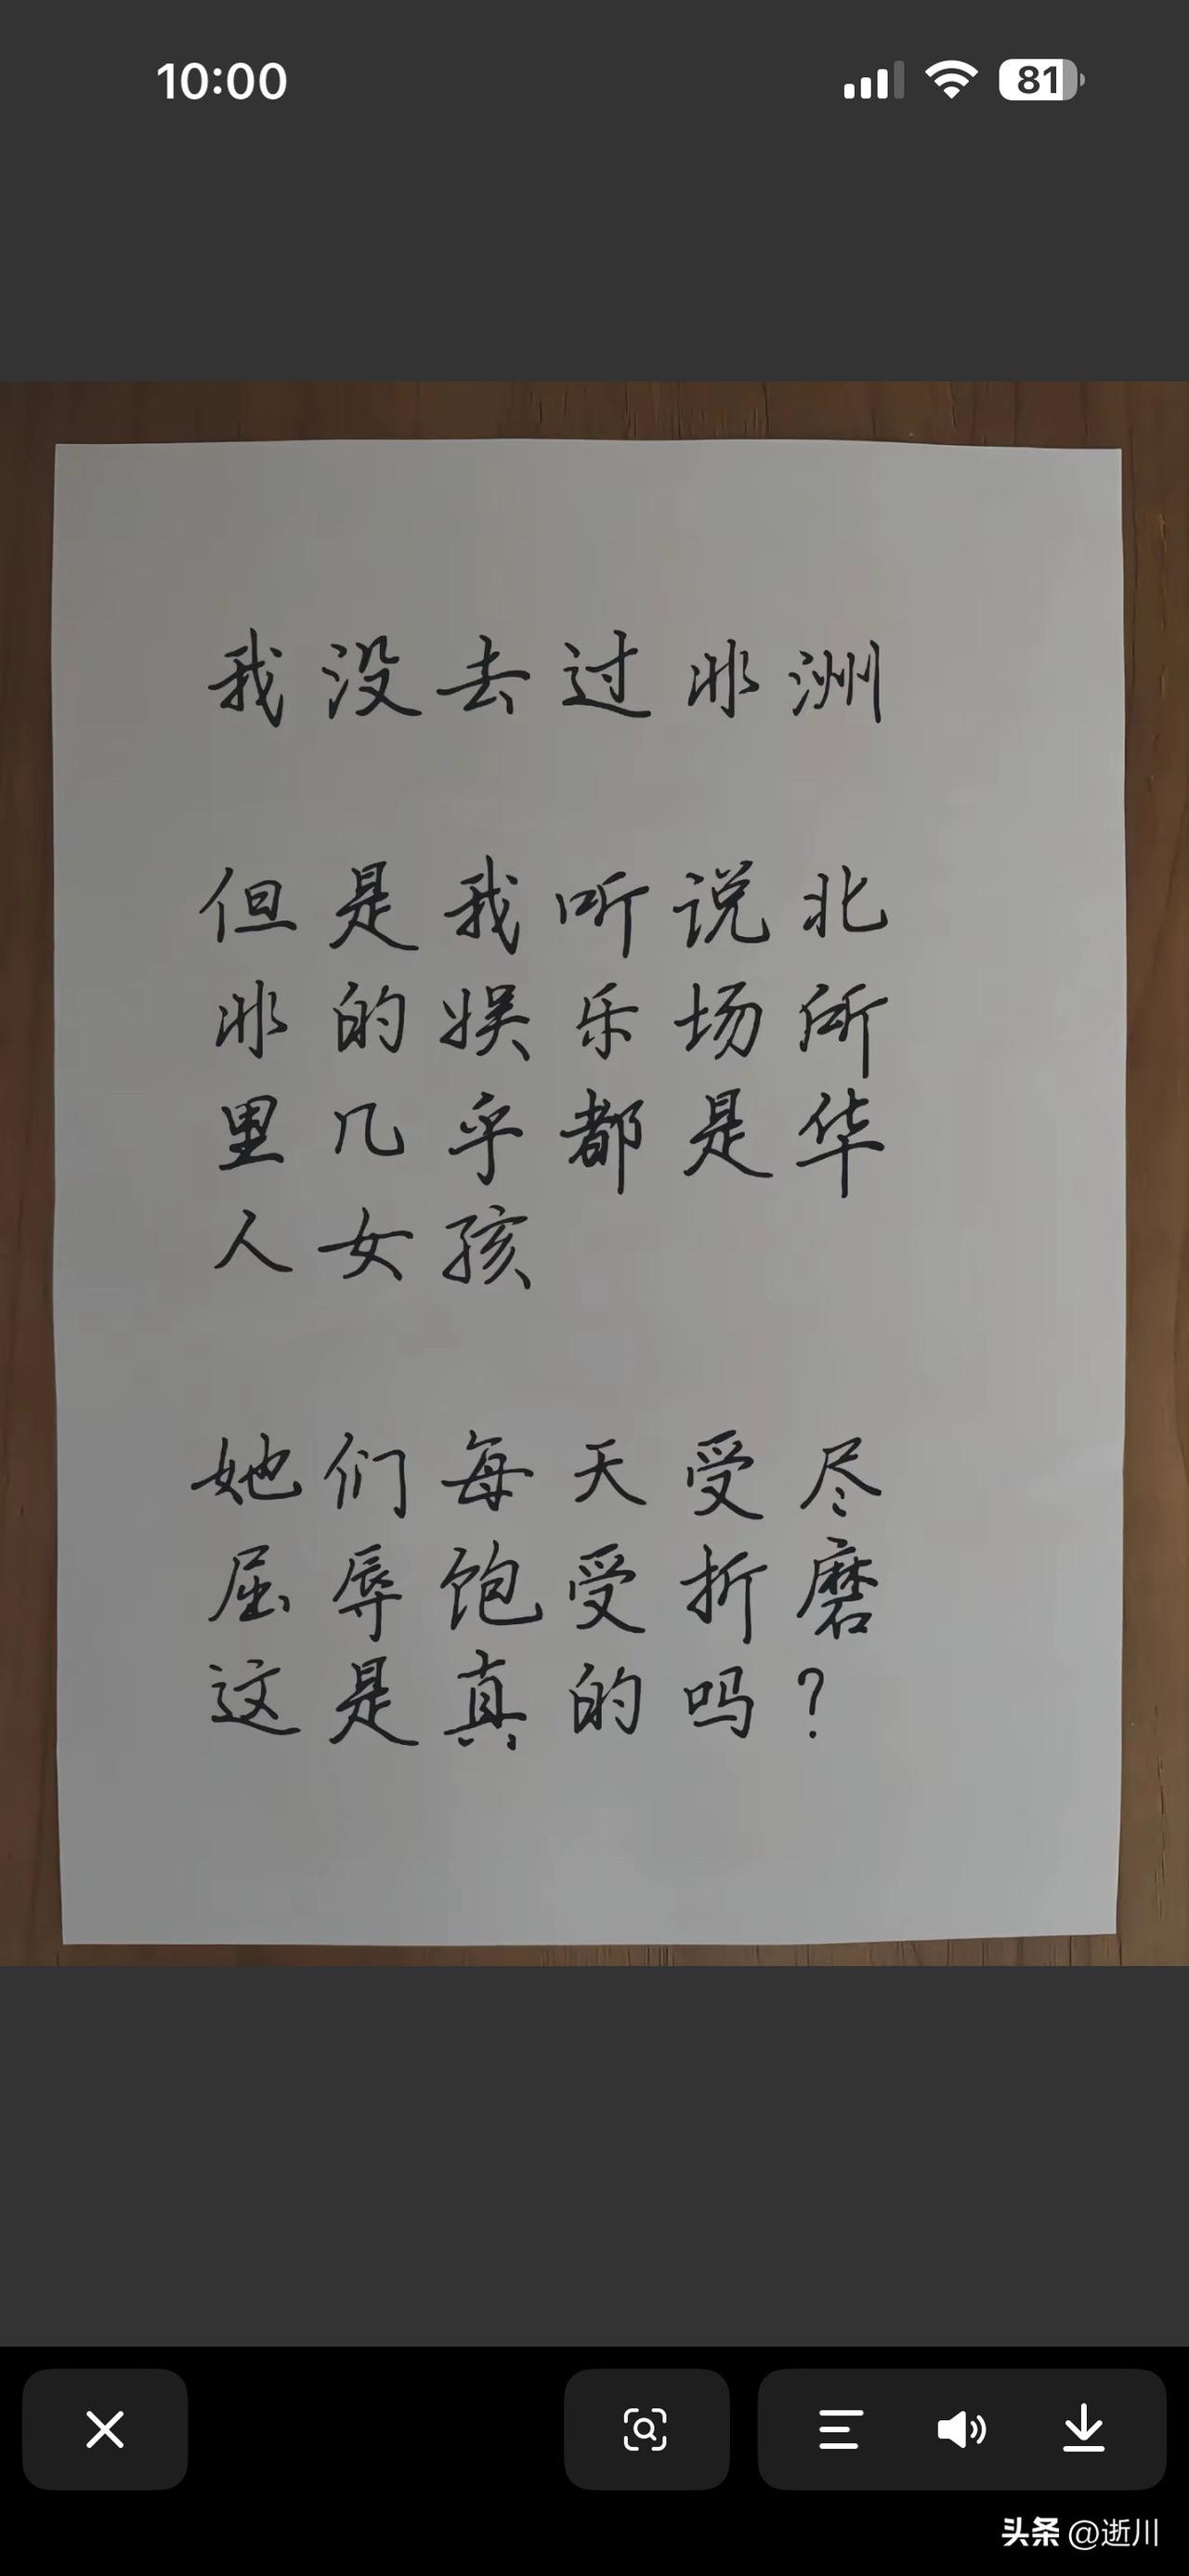 10:00
81
我没去过非洲
但是我听说北
非的娱乐场所
里几乎都是华
人女孩
她们每天受尽
屈辱饱受折磨
这是真的吗？
头条 @逝川